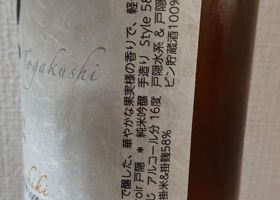 Togakushi
で醸した、華やかな果実様の香りで、軽
oir 戸隠 * 純米吟醸 手造り Style 58
じ アルコール分 16度 戸隠水系 & 戸隠
掛米&掛麹58% ビン貯蔵酒100%